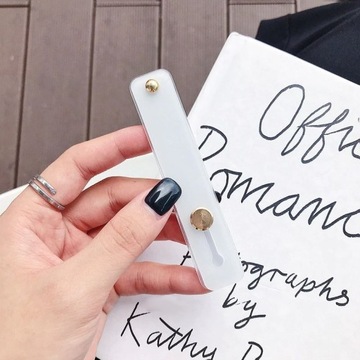 Offic
Romanc
Photographs
by
Kathy R